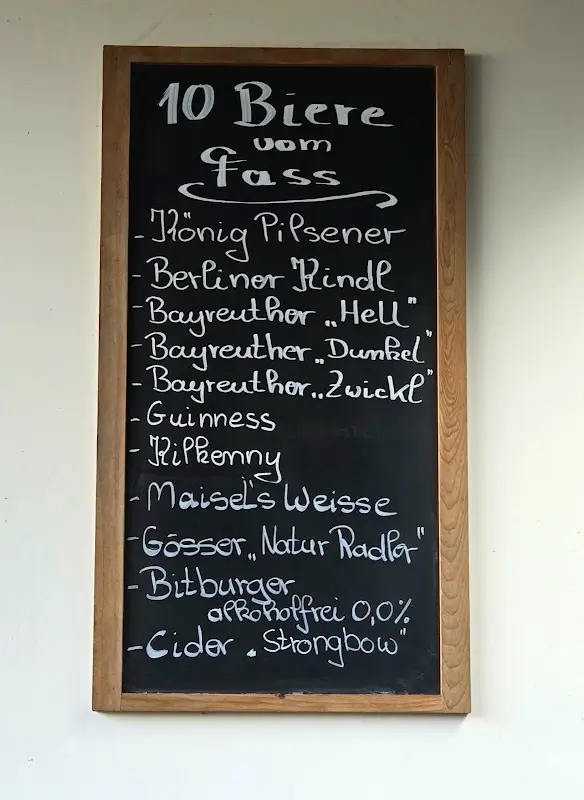 10 Biere
vom
Fass
- König Pilsener
- Berliner Kindl
- Bayreuther „Hell"
- Bayreuther „Dunkel"
- Bayreuther „Zwickl"
- Guinness
- Kilkenny
- Maisel's Weisse
- Gösser „Natur Radler"
- Bitburger
alkoholfrei 0,0%
- Cider „Strongbow"